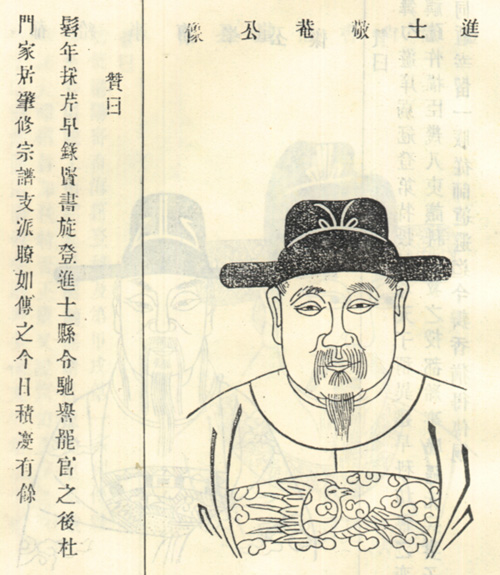 進士敬菴公像
贊曰
髫年採芹早錄賢書旋登進士縣令馳譽罷官之後杜
門家居肇修宗譜支派瞭如傳之今日積慶有餘